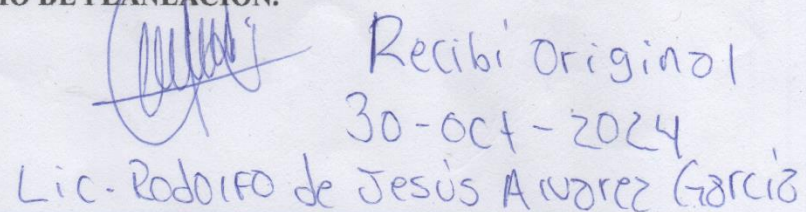 DE PLANEACIÓN.
Recibí Original
30-oct-2024
Lic. Rodolfo de Jesús Alvarez García